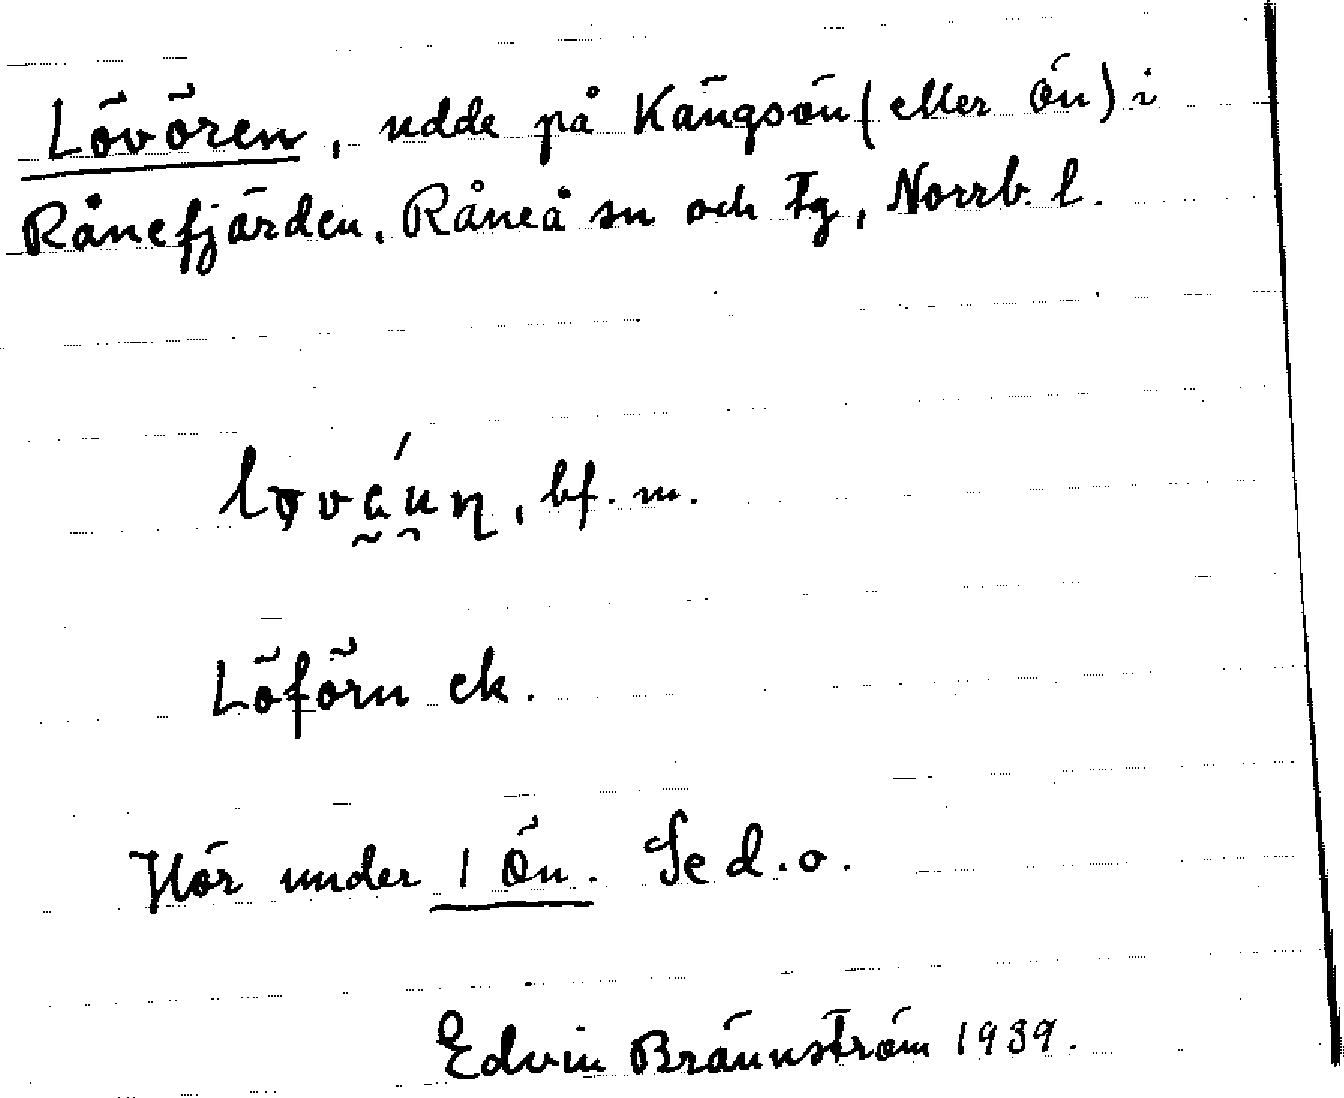 Lövören, udde på Kängsön (eller Ön) i
Rånefjärden, Råneå sn och tg, Norrb. l.
bf. m.
Löförn ek.
Hör under 1 Ön. Se d.o.
Edvin Brännström 1939.